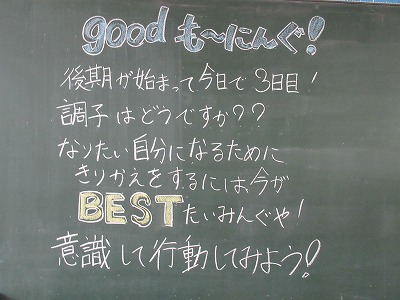 good も〜にんぐ!
後期が始まって今日で3日目!
調子はどうですか??
なりたい自分になるために
きりかえをするには、今が
BESTたいみんぐや!
意識して行動してみよう!